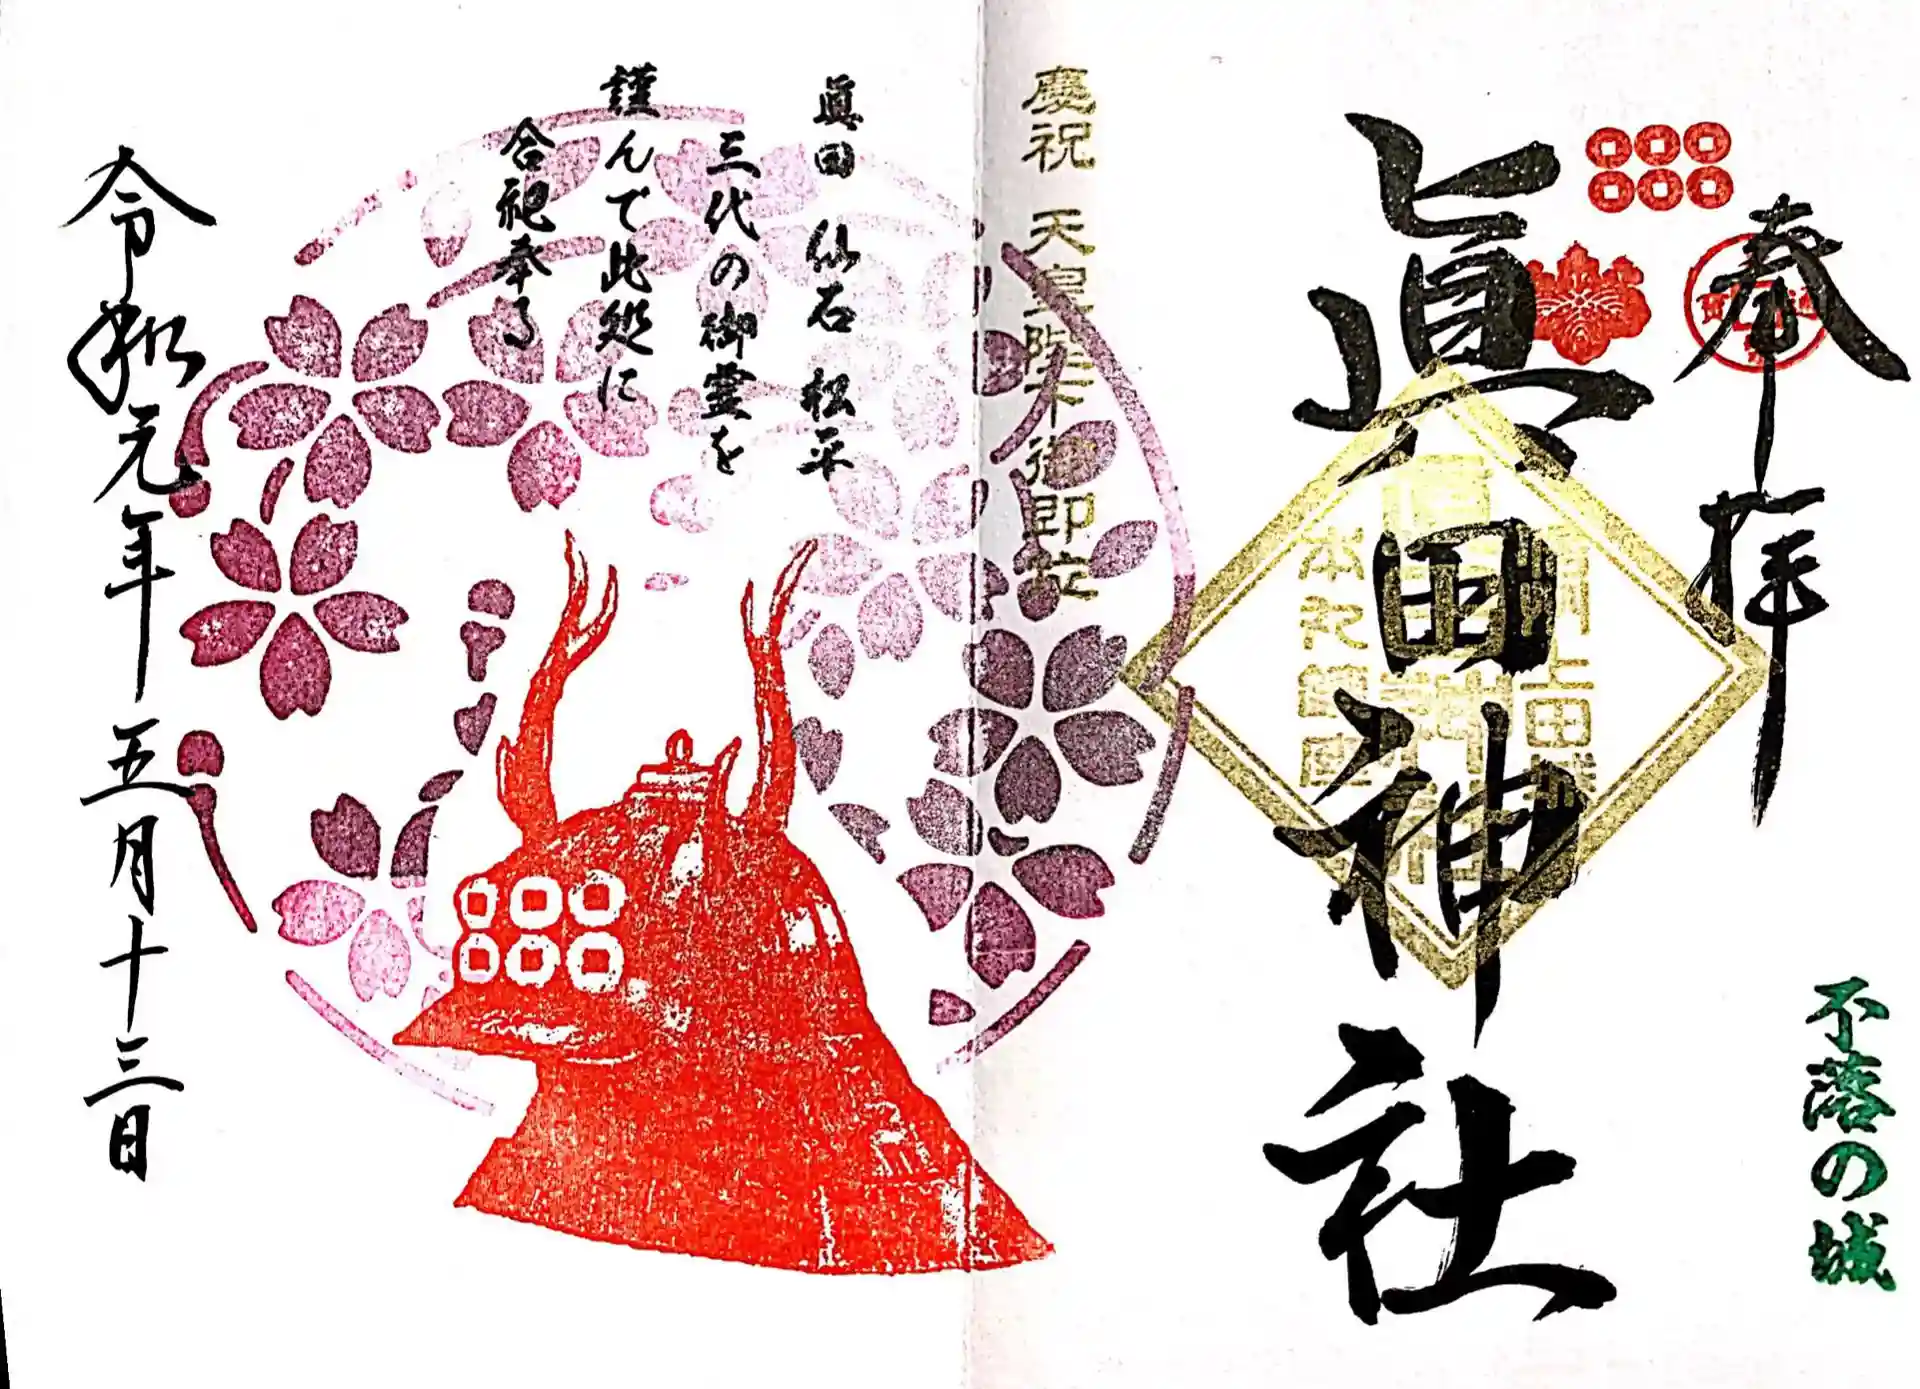 不落の城
奉拝
眞田神社
慶祝 天皇陛下御即位
眞田 仙石 松平
三代の御霊を
謹んで此処に
合祀奉る
令和元年五月十三日